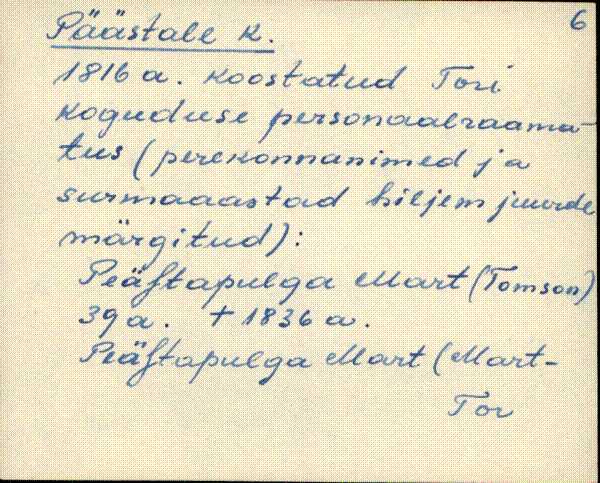 Päästale k.
6
1816 a. koostatud Tori
koguduse personaalraama-
tus (perekonnanimed ja
surmaaastad hiljem juurde
märgitud):
Peäſtapulga Mart (Tomson)
39 a. + 1836 a.
Peäſtapulga Mart (Mart-
Tor